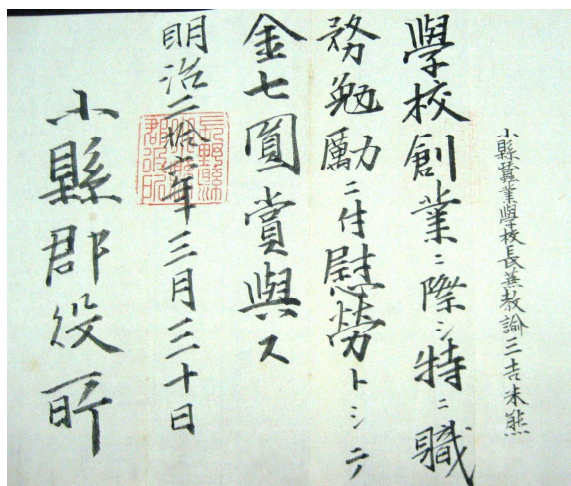 小縣蠶業學校長兼教諭三吉米熊
學校創業ニ際シ特ニ職
務勉勵ニ付慰勞トシテ
金七圓賞與ス
明治二拾六年三月三十日
長野縣
郡役所
小縣郡役所